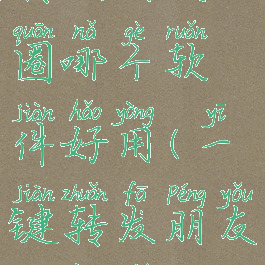 quān nǎ gè ruǎn
圈哪个软
jiàn hǎo yòng yī
件好用(一
jiàn zhuǎn fā péng yǒu
键转发朋友